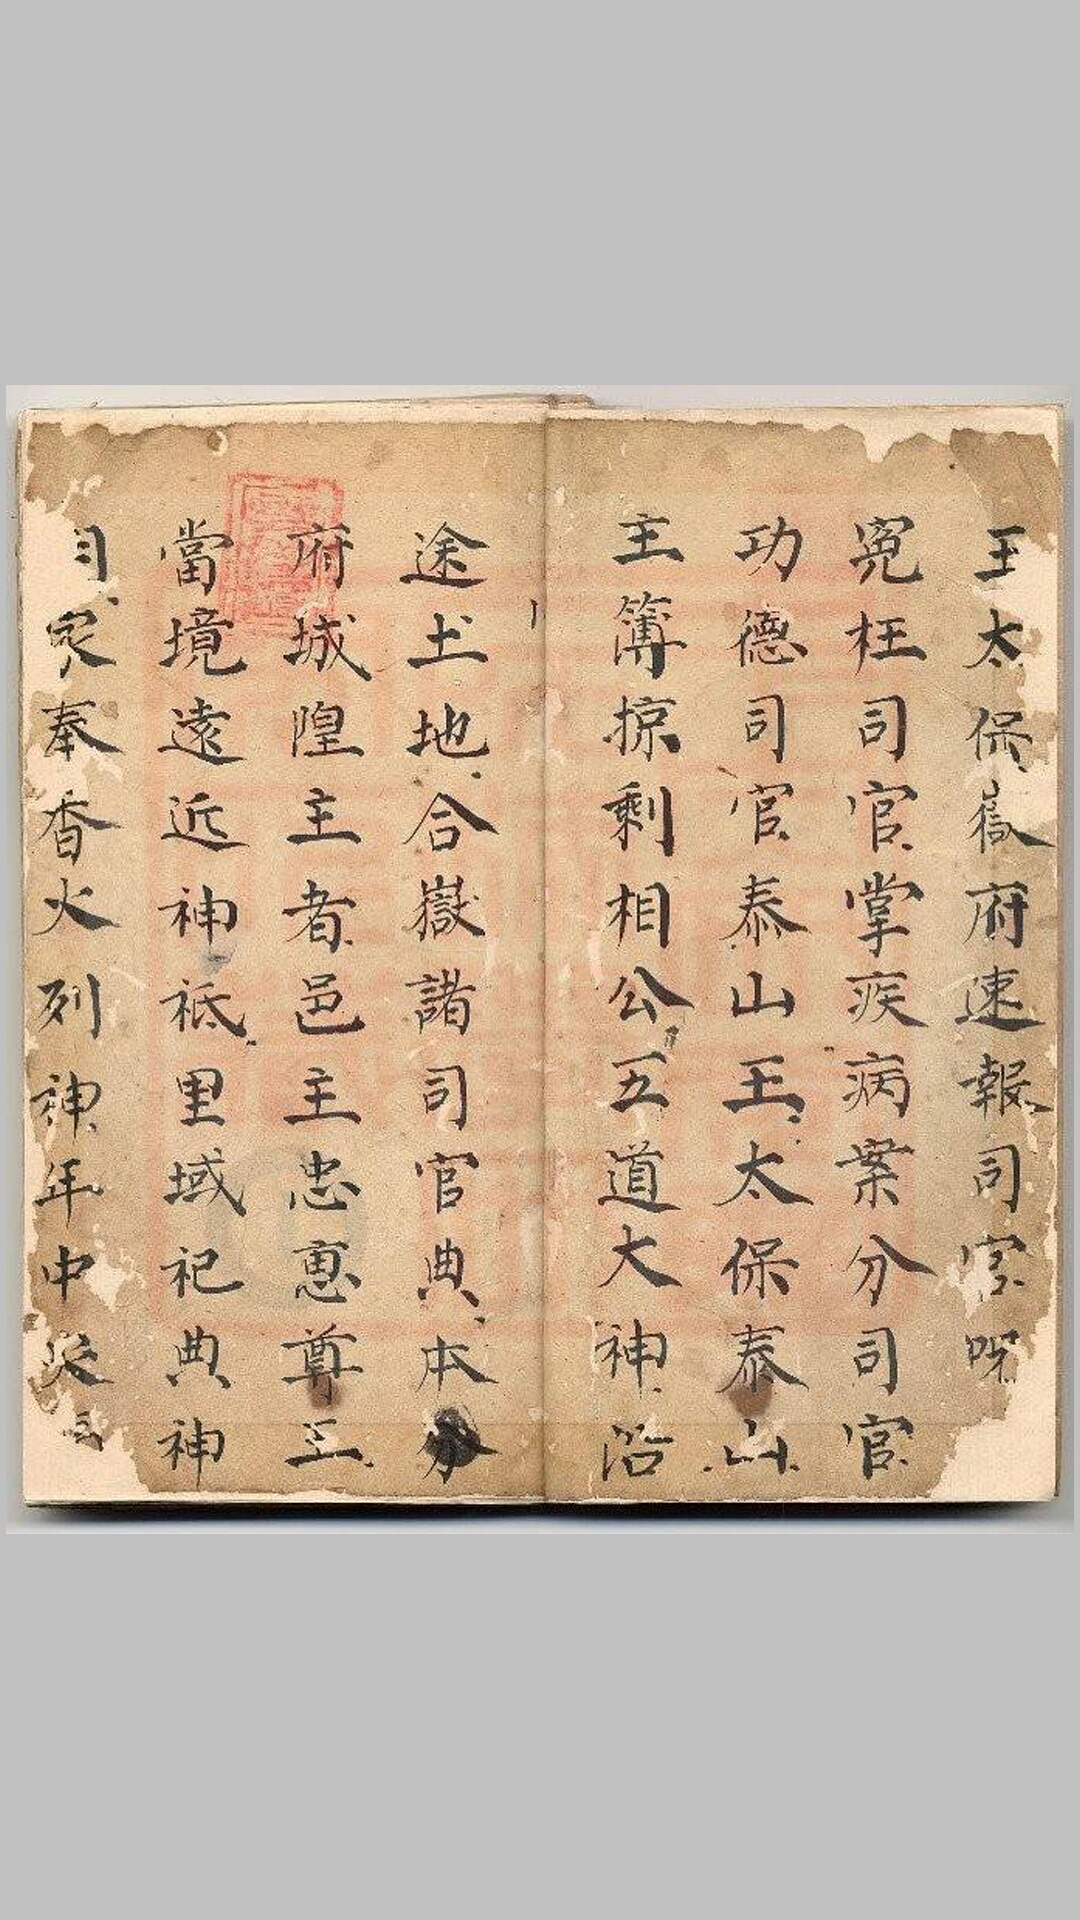 王太保嶽府速報司官
冤枉司官掌疾病案分司官
功德司官泰山王太保泰山
主簿掠剩相公五道大神沿
途土地合嶽諸司官典本分
府城隍主者邑主忠惠尊王
當境遠近神祇里域祀典神
家奉香火列神年中